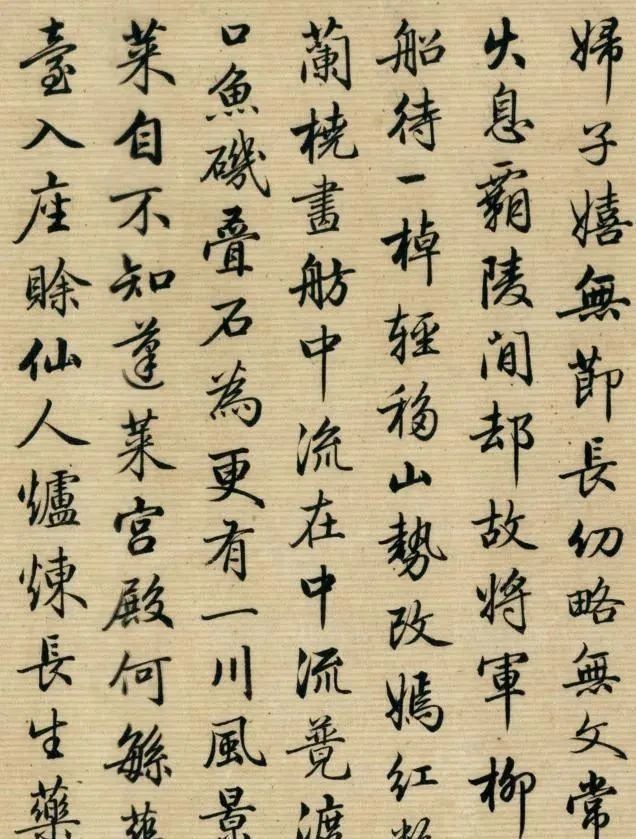 婦子嬉無節長幼略無文常
火息霸陵閒却故將軍柳
船待一棹輕移山勢改嫣紅
蘭橈畫舫中流在中流薨渡
口魚磯疊石為更有一川風景
萊自不知蓬萊宮殿何
臺入座賒仙人爐煉長生藥